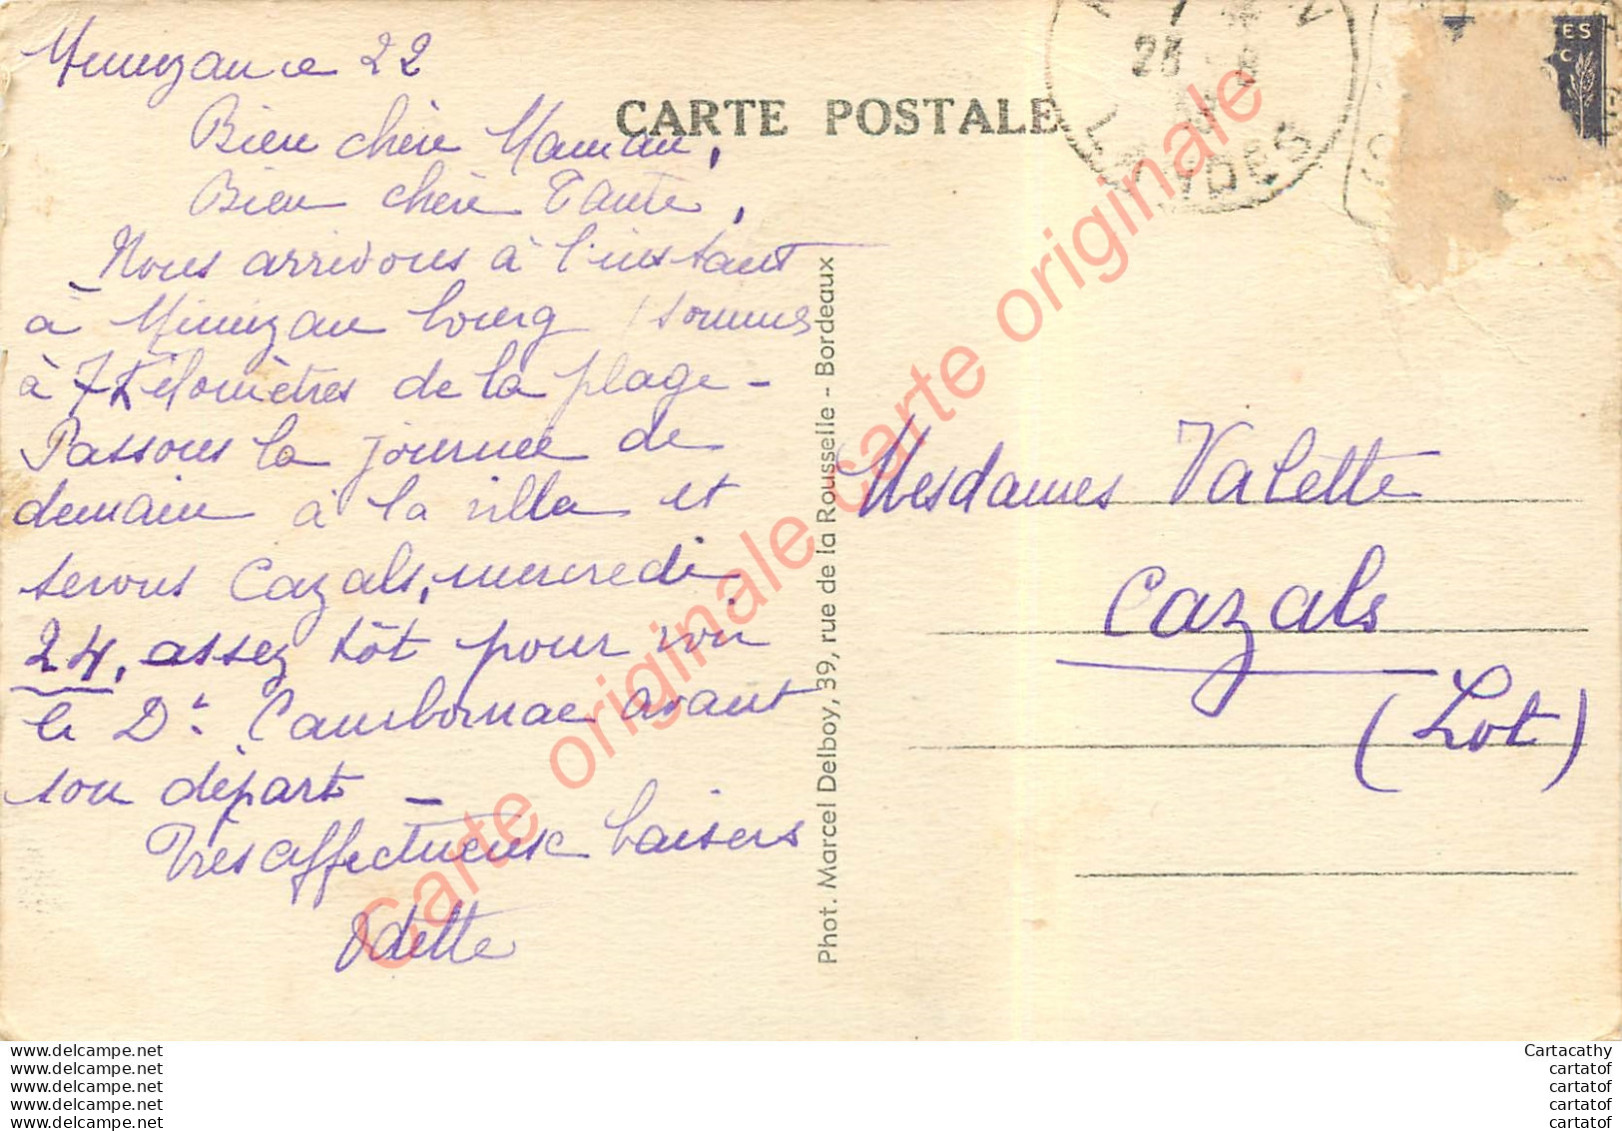 Mimizan ce 22
Bien chère Maman,
Bien chère Tante,
Nous arrivons à l'instant
à Mimizan bourg, sommes
à 7 Kilomètres de la plage -
Passons la journée de
demain à la villa et
serons Cazals, mercredi
24, assez tôt pour voir
le Dr Cambornac avant
son départ -
Très affectueux baisers
Odette
CARTE POSTALE
Phot. Marcel Delboy, 39, rue de la Rousselle - Bordeaux
23
LANDES
ES
Mesdames Valette
Cazals
(Lot)
Carte originale carte originale carte originale
www.delcampe.net
www.delcampe.net
www.delcampe.net
www.delcampe.net
www.delcampe.net
Cartacathy
cartatof
cartatof
cartatof
cartatof